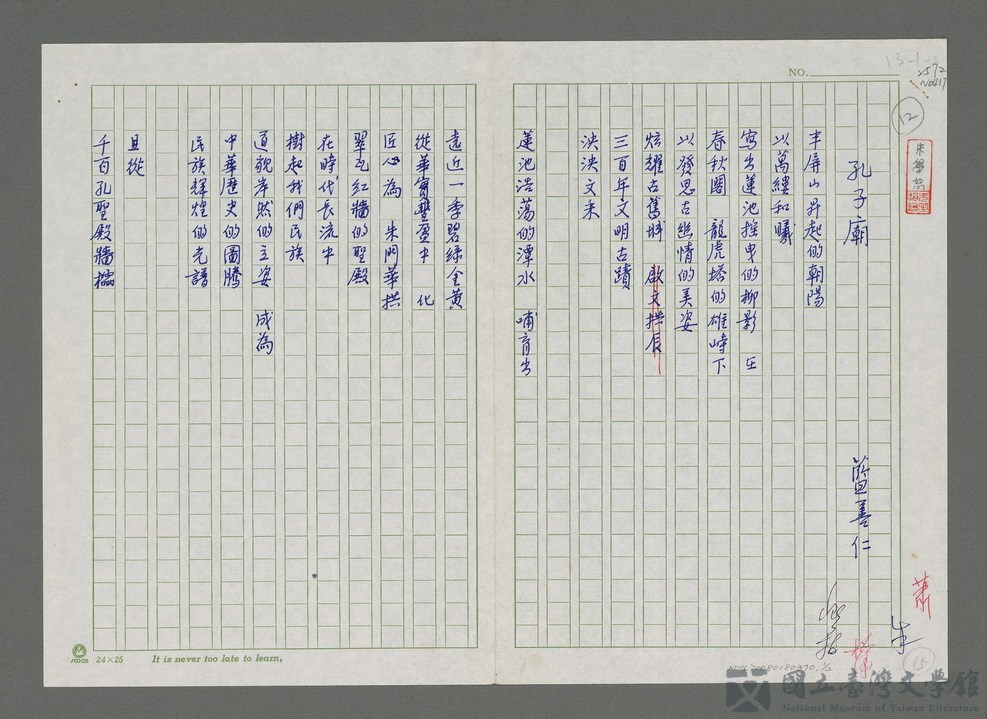 NO.
13-1-
2572
No417
12
朱學恕
孔子廟
藍善仁
半屏山昇起的朝陽
以萬縷和曦
寫出蓮池搖曳的柳影 在
春秋閣 龍虎塔的雄峙下
以發思古幽情的美姿
炫耀古舊城 啟文拱辰
三百年文明古蹟
泱泱文采
蓮池浩蕩的潭水 哺育出
遠近一季碧綠金黃
從華實豐盈中 化
匠心為 朱門華拱
翠瓦紅牆的聖殿
在時代長流中
樹起我們民族
道貌岸然的立姿 成為
中華歷史的圖騰
民族輝煌的光譜
且從
千百孔聖殿牆檽
蕭
朱
15
24×25
It is never too late to learn,
國立臺灣文學館
National Museum of Taiwan Literature